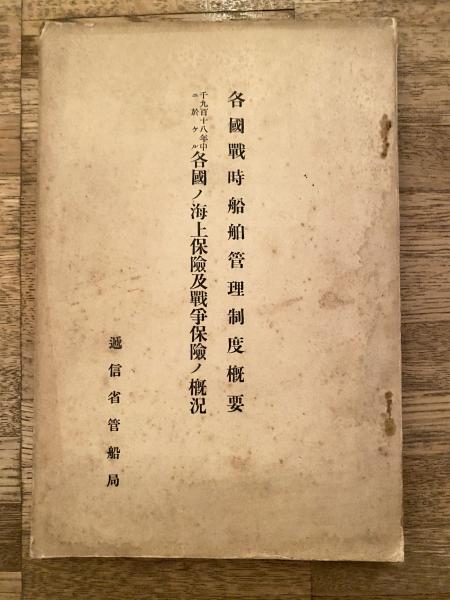 各國戰時船舶管理制度槪要
千九百十八年中
ニ於ケル
各國ノ海上保險及戰爭保險ノ槪況
遞信省管船局